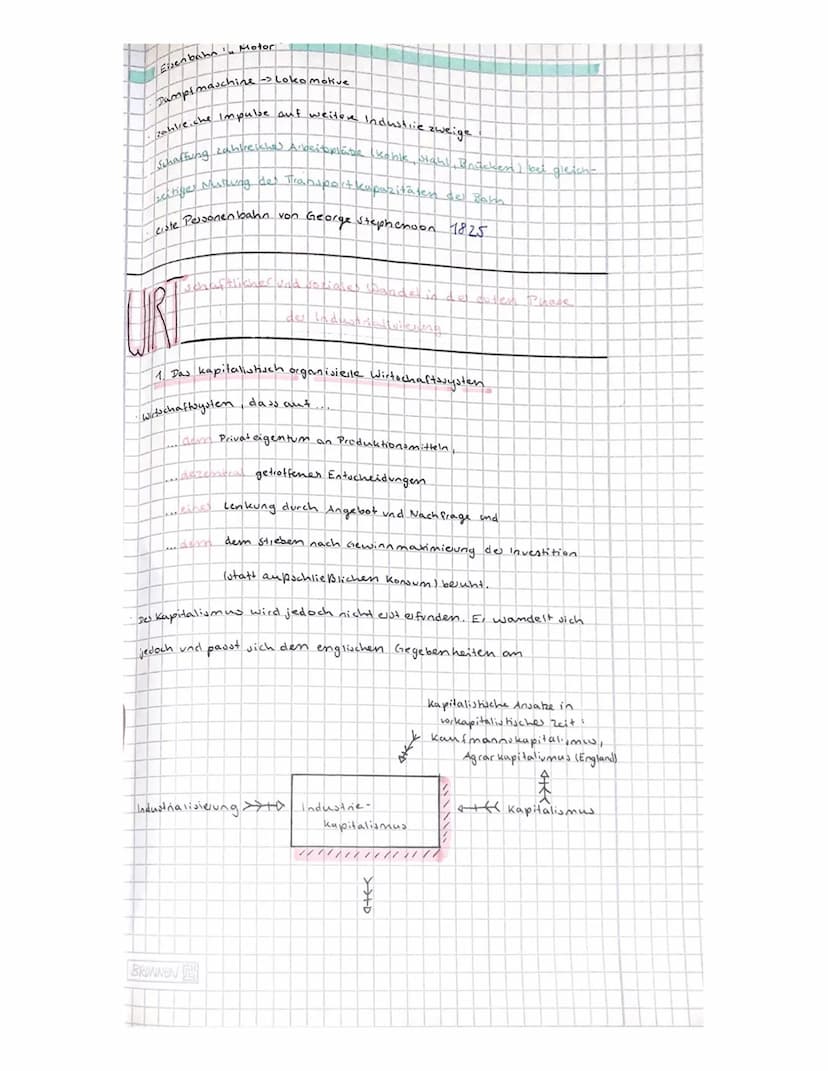 Eisenbahn in Motor
Dampfmaschine -> Lokomotive
zahlreiche Impulse auf weitere Industriezweige:
Schaffung zahlreicher Arbeitsplätze (Kohle, Stahl, Brücken) bei gleich-
zeitiger Nutzung der Transportkapazitäten der Bahn
erste Personenbahn von George Stephenson 1825
WIRTschaftlicher und sozialer Wandel in der ersten Phase
der Industrialisierung
1. Das kapitalistisch organisierte Wirtschaftssystem
Wirtschaftssystem, dass auf...
... dem Privateigentum an Produktionsmitteln,
... dezentral getroffenen Entscheidungen
... einer Lenkung durch Angebot und Nachfrage und
... dem dem Streben nach Gewinnmaximierung der Investition
(statt außschließlichen Konsum) beruht.
Der Kapitalismus wird jedoch nicht erst erfunden. Er wandelt sich
jedoch und passt sich den englischen Gegebenheiten an
Kapitalistische Ansätze in
vorkapitalistischer Zeit:
Kaufmannskapitalismus,
Agrarkapitalismus (England)
Industrialisierung
Industrie-
kapitalismus
Kapitalismus
BRUNNEN